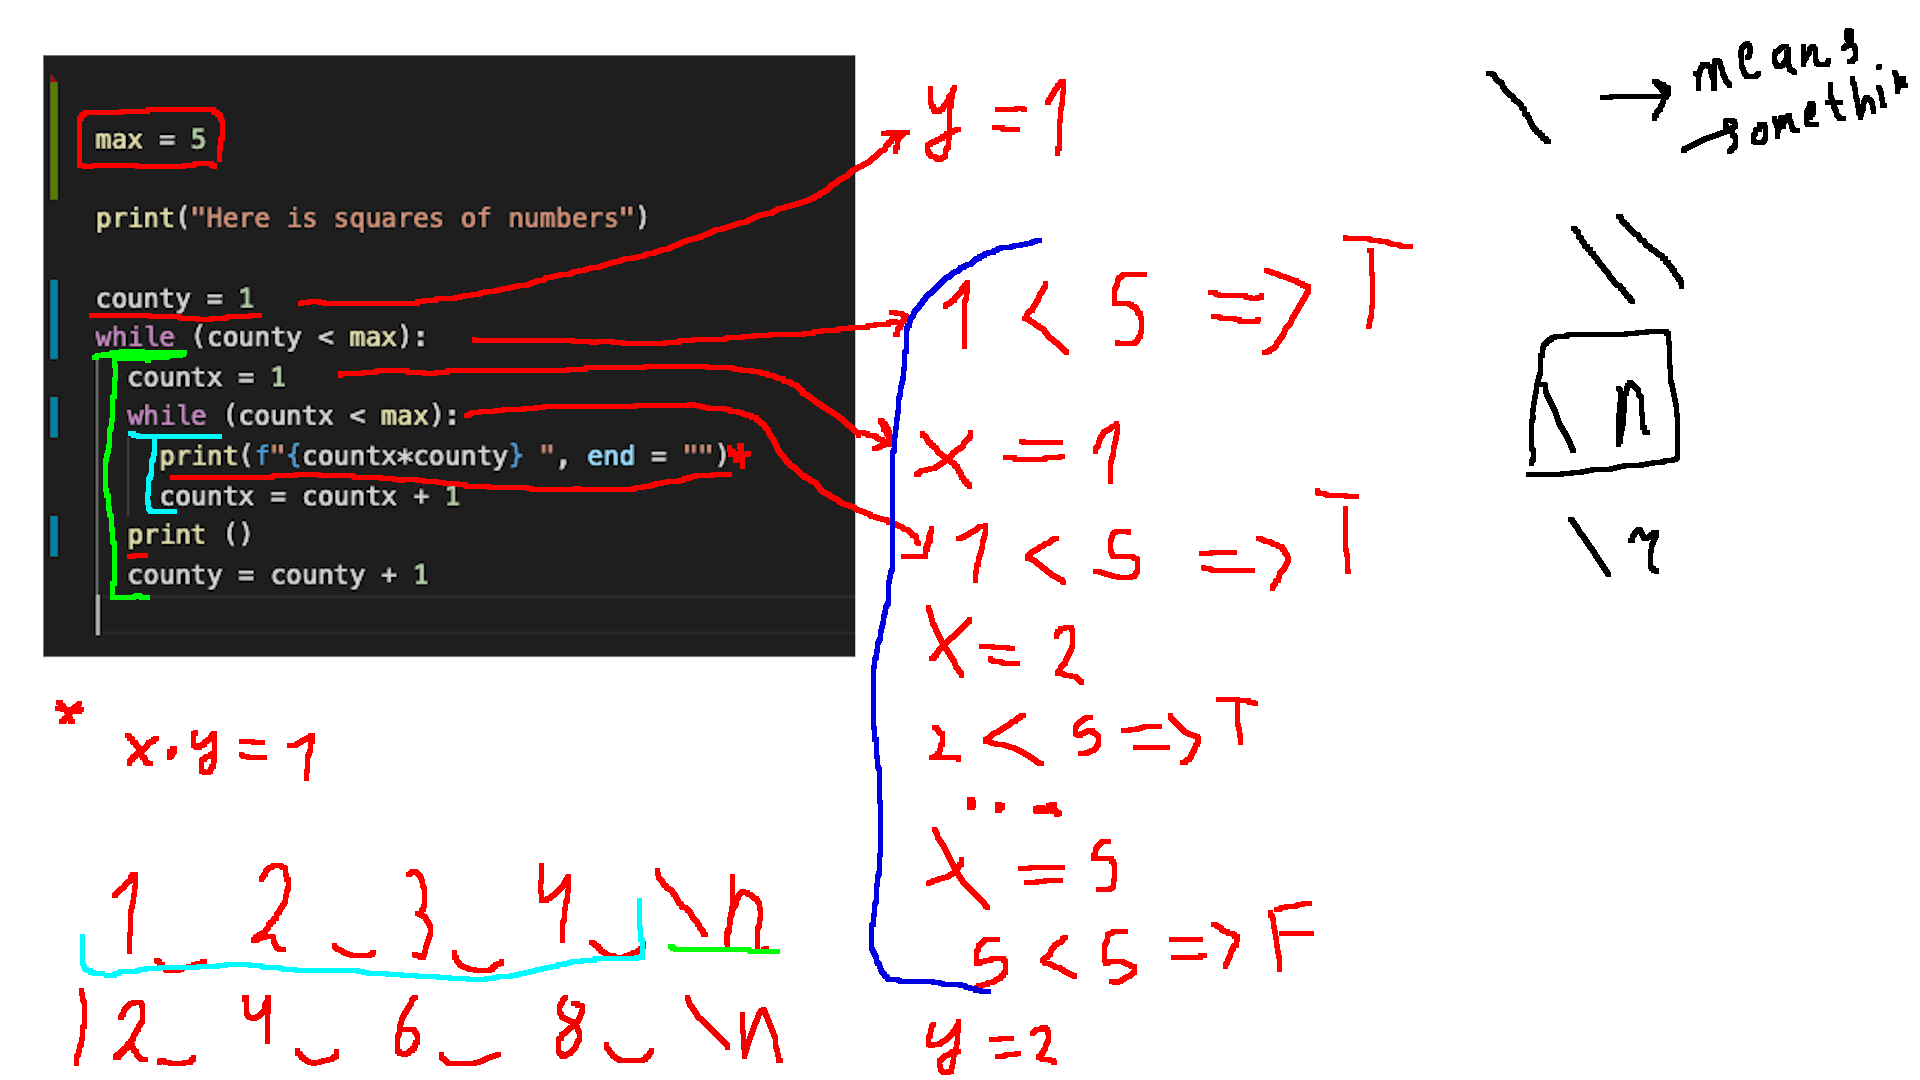 max = 5
print("Here is squares of numbers")
county = 1
while (county < max):
countx = 1
while (countx < max):
print(f"{countx*county} ", end = "")*
countx = countx + 1
print ()
county = county + 1
* x.y = 1
1 _ 2 _ 3 _ 4 _ \n
2 _ 4 _ 6 _ 8 _ \n
y = 1
1 < 5 => T
x = 1
1 < 5 => T
x = 2
2 < 5 => T
...
x = 5
5 < 5 => F
y = 2
\ → means
somethin
\\
\n